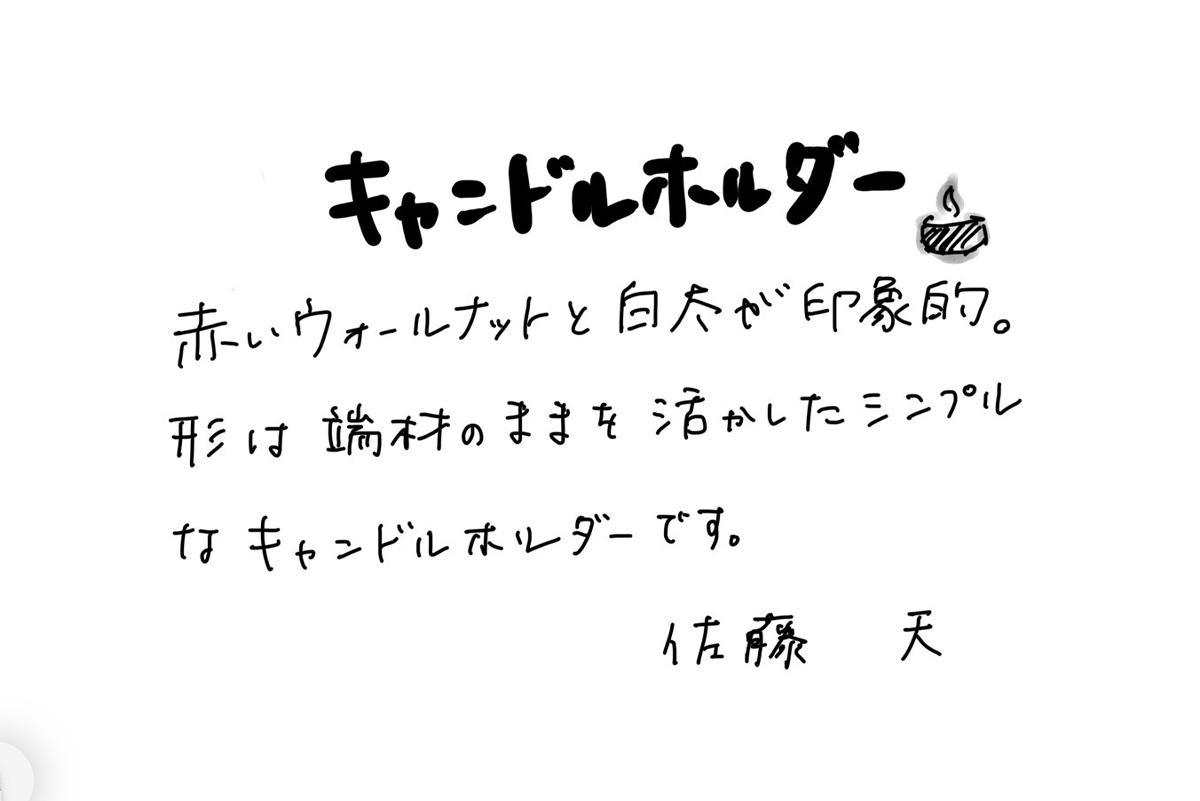 キャンドルホルダー
赤いウォールナットと白太が印象的。
形は端材のままを活かしたシンプル
なキャンドルホルダーです。
佐藤 天